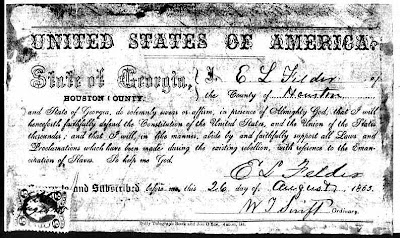 UNITED STATES OF AMERICA.
State of Georgia, I, E L Felder of
HOUSTON COUNTY. the County of Houston
and State of Georgia, do solemnly swear or affirm, in presence of Almighty God, that I will
henceforth faithfully defend the Constitution of the United States, and the Union of the States
thereunder; and that I will, in like manner, abide by and faithfully support all Laws and
Proclamations which have been made during the existing rebellion, with reference to the Eman-
cipation of Slaves. So help me God.
E L Felder
and Subscribed before me, this 26 day of August 1865.
W T Swift Ordinary.